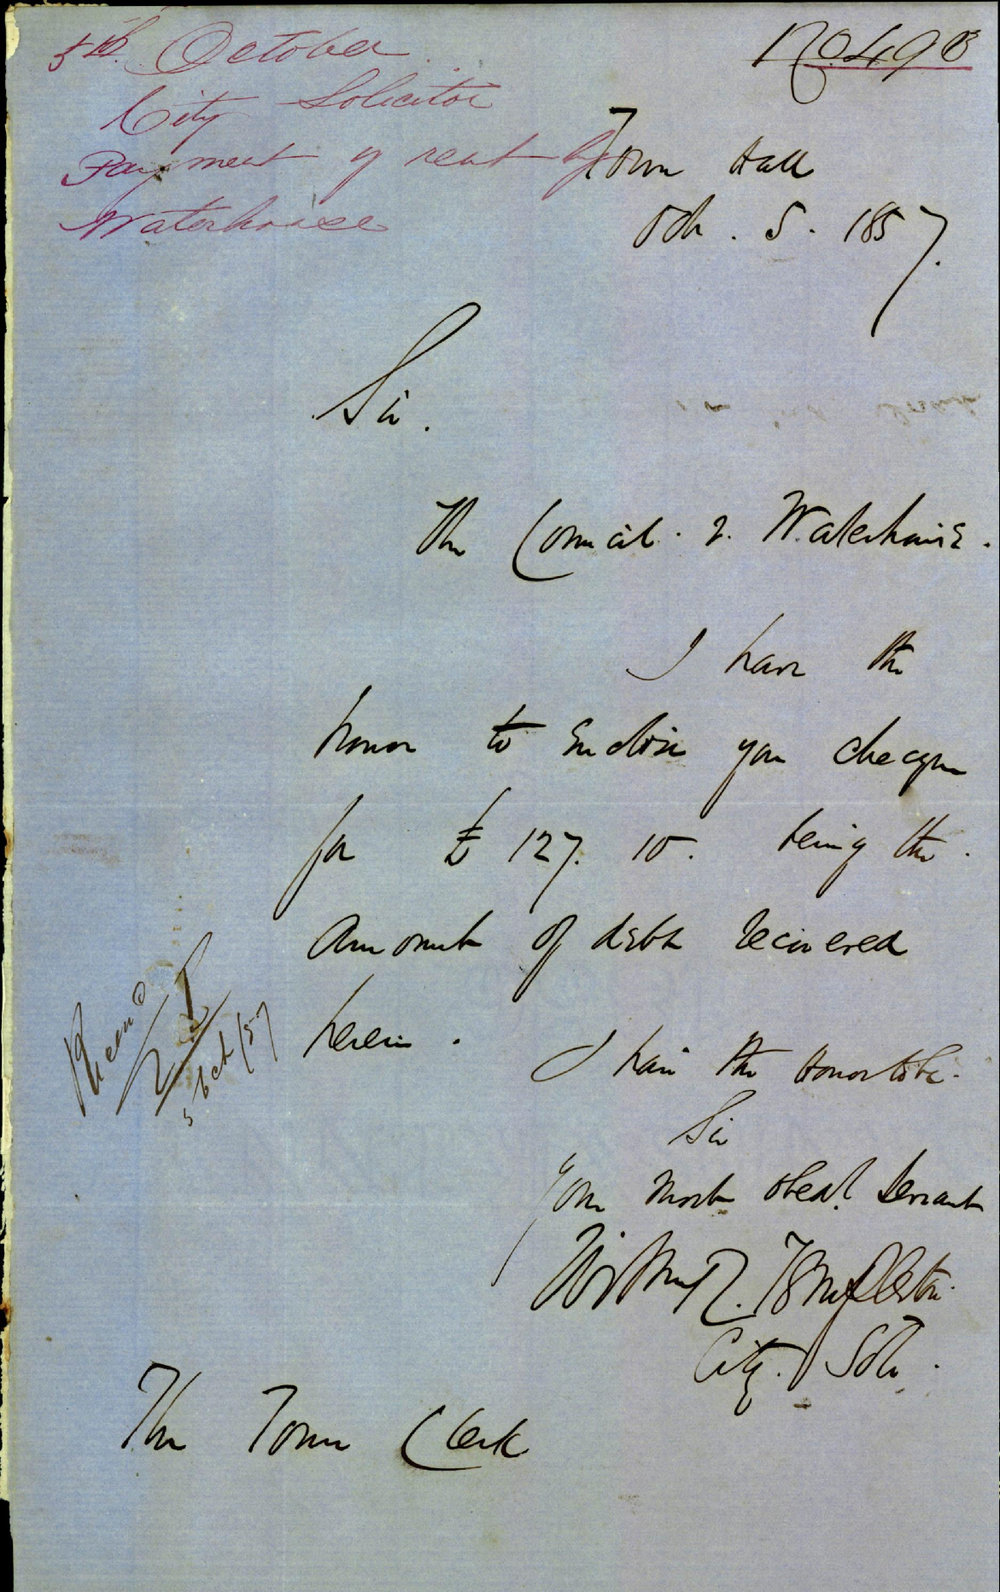 5th. October
City Solicitor
Payment of rent by
Waterhouse
No. 498
Town Hall
Oct. 5. 1857.
Sir.
The Council. v. Waterhouse.
I have the
honor to enclose you cheque
for £ 127. 10. being the
amount of debt recovered
herein.
I have the Honor to be.
Sir
Your most obedt. Servant
City. Solr.
The Town Clerk
5 Oct/57